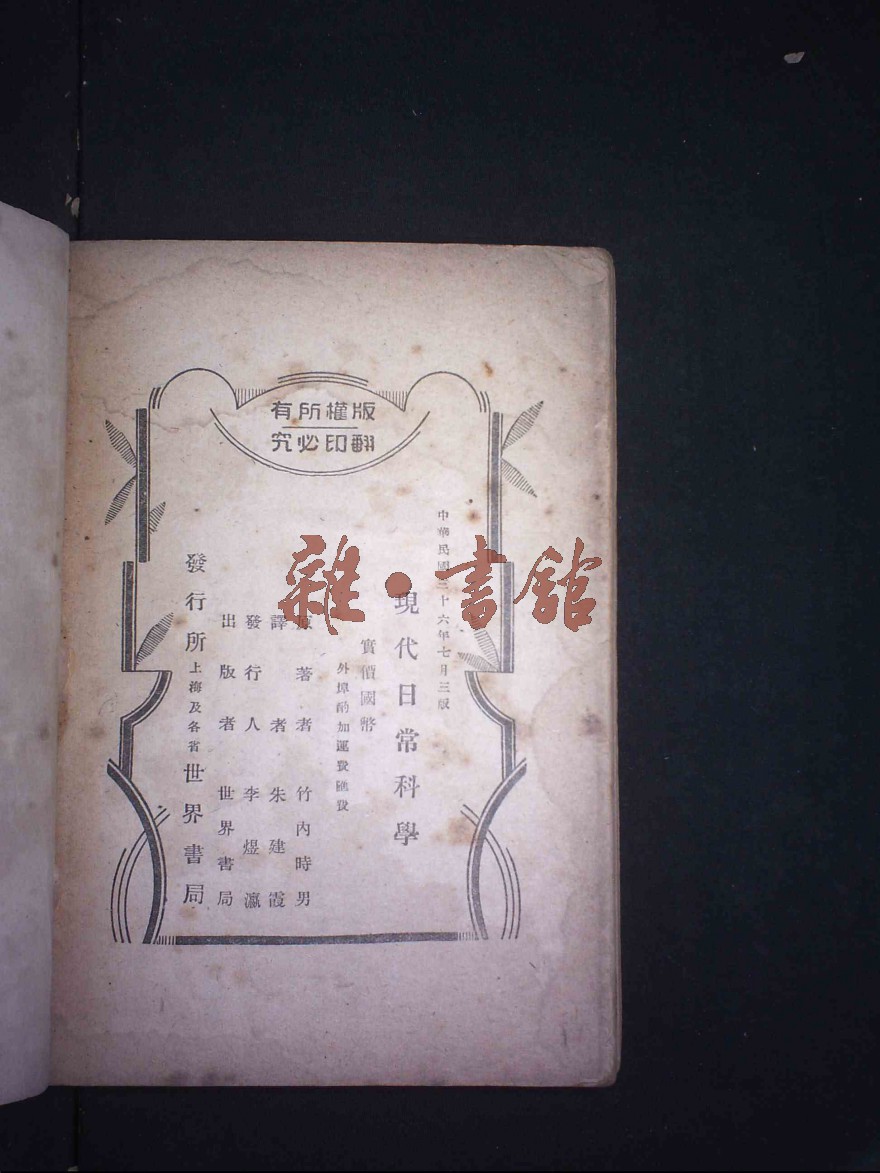 版權所有
翻印必究
中華民國三十六年七月三版
現代日常科學
實價國幣
外埠酌加運費匯費
原著者 竹內時男
譯者 朱建霞
發行人 李煜瀛
出版者 世界書局
發行所 上海及各省 世界書局
雜·書館